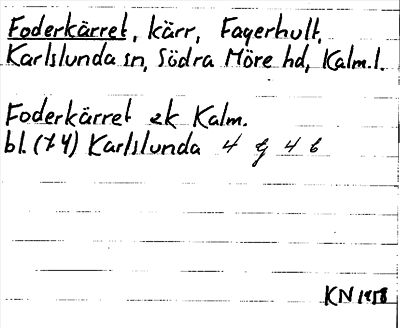 Foderkärret, kärr, Fagerhult,
Karlslunda sn, Södra Möre hd, Kalm.l.
Foderkärret ek Kalm.
bl. (74) Karlslunda 4 g 4 b
KN 1958